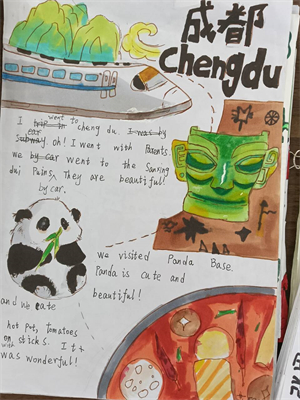 成都
chengdu
I went to cheng du. I was by
car subway oh! I went with Parents.
we by car went to the Sanxing
dui Pains, They are beautiful!
by car.
we visited Panda Base.
Panda is cute and
beautiful!
and we eate
hot pot, tomatoes
on sticks. It
with
was wonderful!